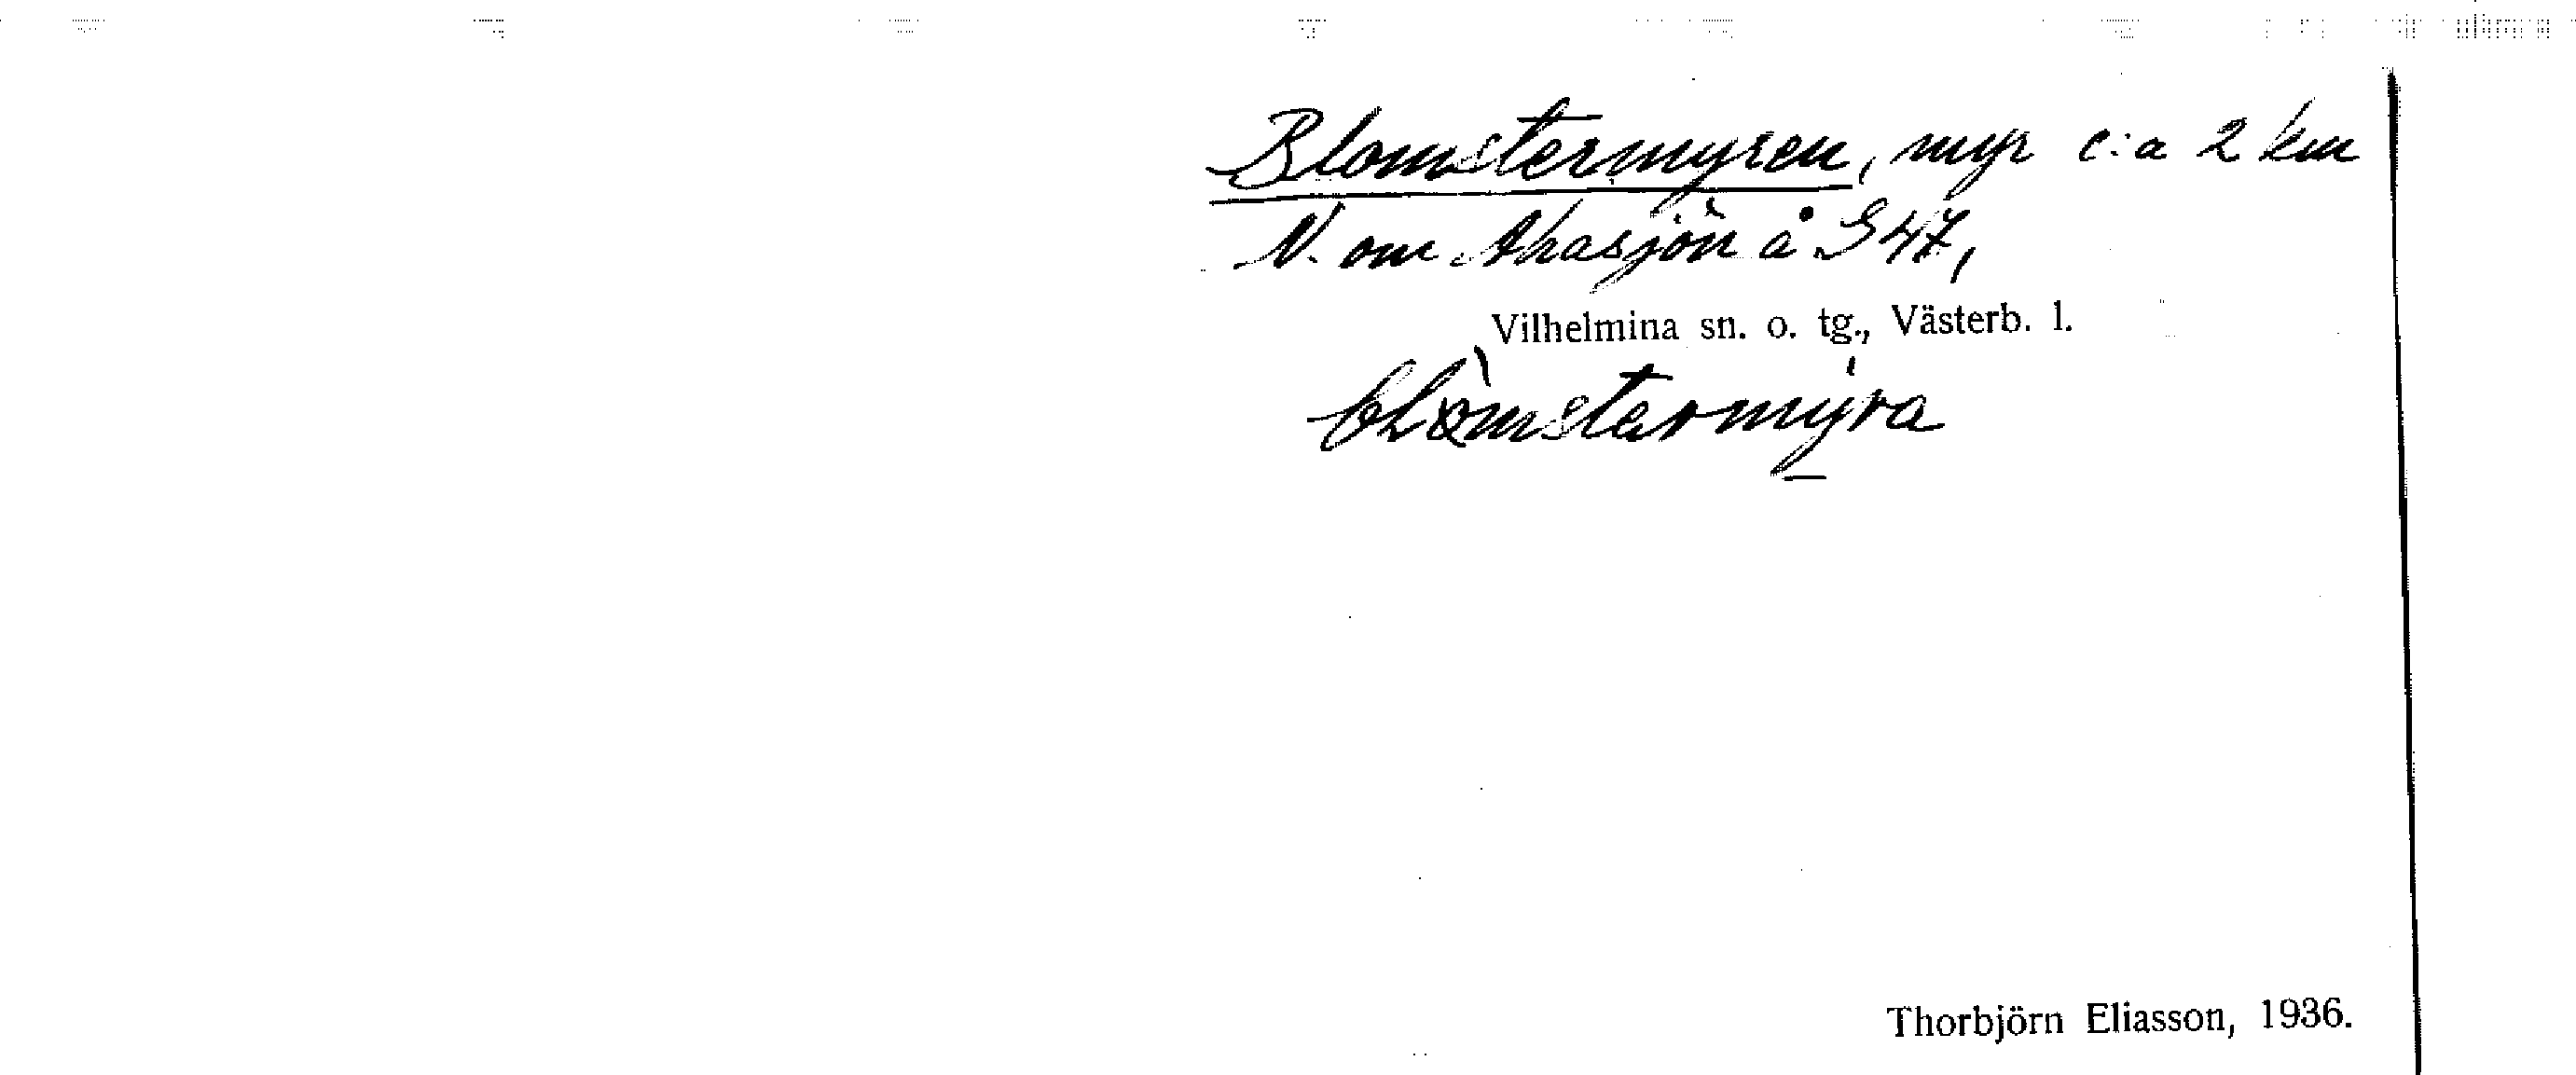 Blomstermyren, myr c:a 2 km
N. om Ahasjön å G 47,
Vilhelmina sn. o. tg., Västerb. l.
blòmstermýra
Thorbjörn Eliasson, 1936.